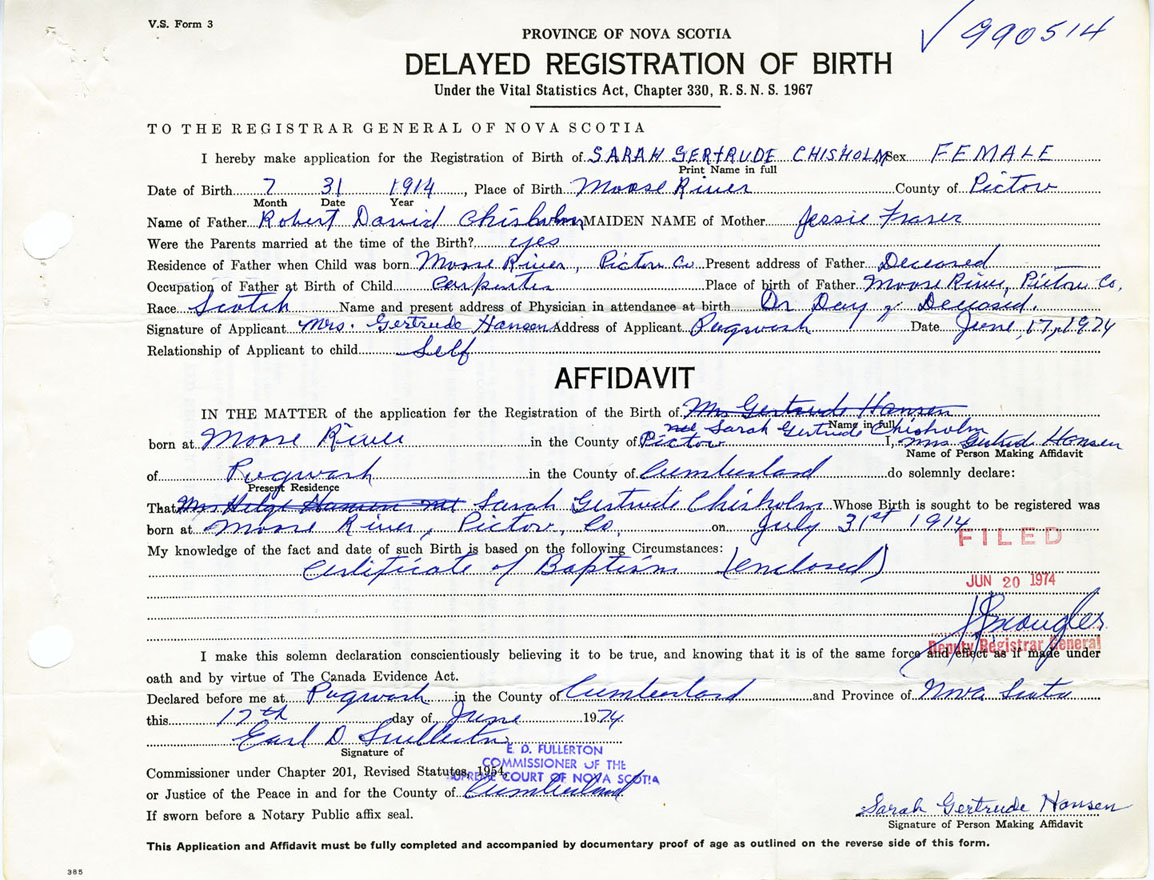 V.S. Form 3
990514
PROVINCE OF NOVA SCOTIA
DELAYED REGISTRATION OF BIRTH
Under the Vital Statistics Act, Chapter 330, R.S.N.S. 1967
TO THE REGISTRAR GENERAL OF NOVA SCOTIA
I hereby make application for the Registration of Birth of SARAH GERTRUDE CHISHOLM Sex FEMALE
Print Name in full
Date of Birth 7 31 1914, Place of Birth Moose River County of Pictou
Month Date Year
Name of Father Robert David Chisholm MAIDEN NAME of Mother Jessie Fraser
Were the Parents married at the time of the Birth? yes
Residence of Father when Child was born Moose River, Pictou Co Present address of Father Deceased
Occupation of Father at Birth of Child Carpenter Place of birth of Father Moose River, Pictou Co,
Race Scotch Name and present address of Physician in attendance at birth Dr Day Deceased.
Signature of Applicant Mrs. Gertrude Hansen Address of Applicant Pugwash Date June, 17, 1974
Relationship of Applicant to child Self
AFFIDAVIT
IN THE MATTER of the application for the Registration of the Birth of Mrs Gertrude Hansen
née Sarah Gertrude Chisholm
Name in full
born at Moose River in the County of Pictou I, Mrs Gertrude Hansen
Name of Person Making Affidavit
of Pugwash in the County of Cumberland do solemnly declare:
Present Residence
That Mrs Helge Hansen née Sarah Gertrude Chisholm Whose Birth is sought to be registered was
born at Moose River, Pictou, Co, on July 31st 1914
FILED
My knowledge of the fact and date of such Birth is based on the following Circumstances:
Certificate of Baptism (enclosed)
JUN 20 1974
Deputy Registrar General
I make this solemn declaration conscientiously believing it to be true, and knowing that it is of the same force and effect as if made under
oath and by virtue of The Canada Evidence Act.
Declared before me at Pugwash in the County of Cumberland and Province of Nova Scotia
this 17th day of June 1974
Earl D Fullerton
Signature of
E. D. FULLERTON
COMMISSIONER OF THE
SUPREME COURT OF NOVA SCOTIA
Commissioner under Chapter 201, Revised Statutes, 1954,
or Justice of the Peace in and for the County of Cumberland
If sworn before a Notary Public affix seal.
Sarah Gertrude Hansen
Signature of Person Making Affidavit
This Application and Affidavit must be fully completed and accompanied by documentary proof of age as outlined on the reverse side of this form.
385